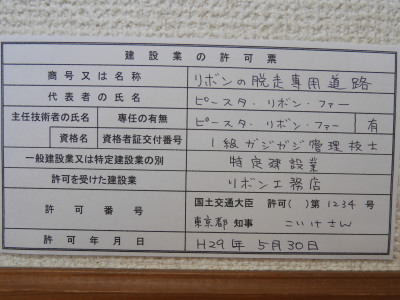 建設業の許可票
商号又は名称 リボンの脱走専用道路
代表者の氏名 ピースタ・リボン・ファー
主任技術者の氏名 専任の有無 ピースタ・リボン・ファー 有
資格名 資格者証交付番号 1級ガジガジ管理技士
一般建設業又は特定建設業の別 特定建設業
許可を受けた建設業 リボン工務店
許可番号 国土交通大臣 許可( )第1234号
東京都知事 こいけさん
許可年月日 H29年5月30日